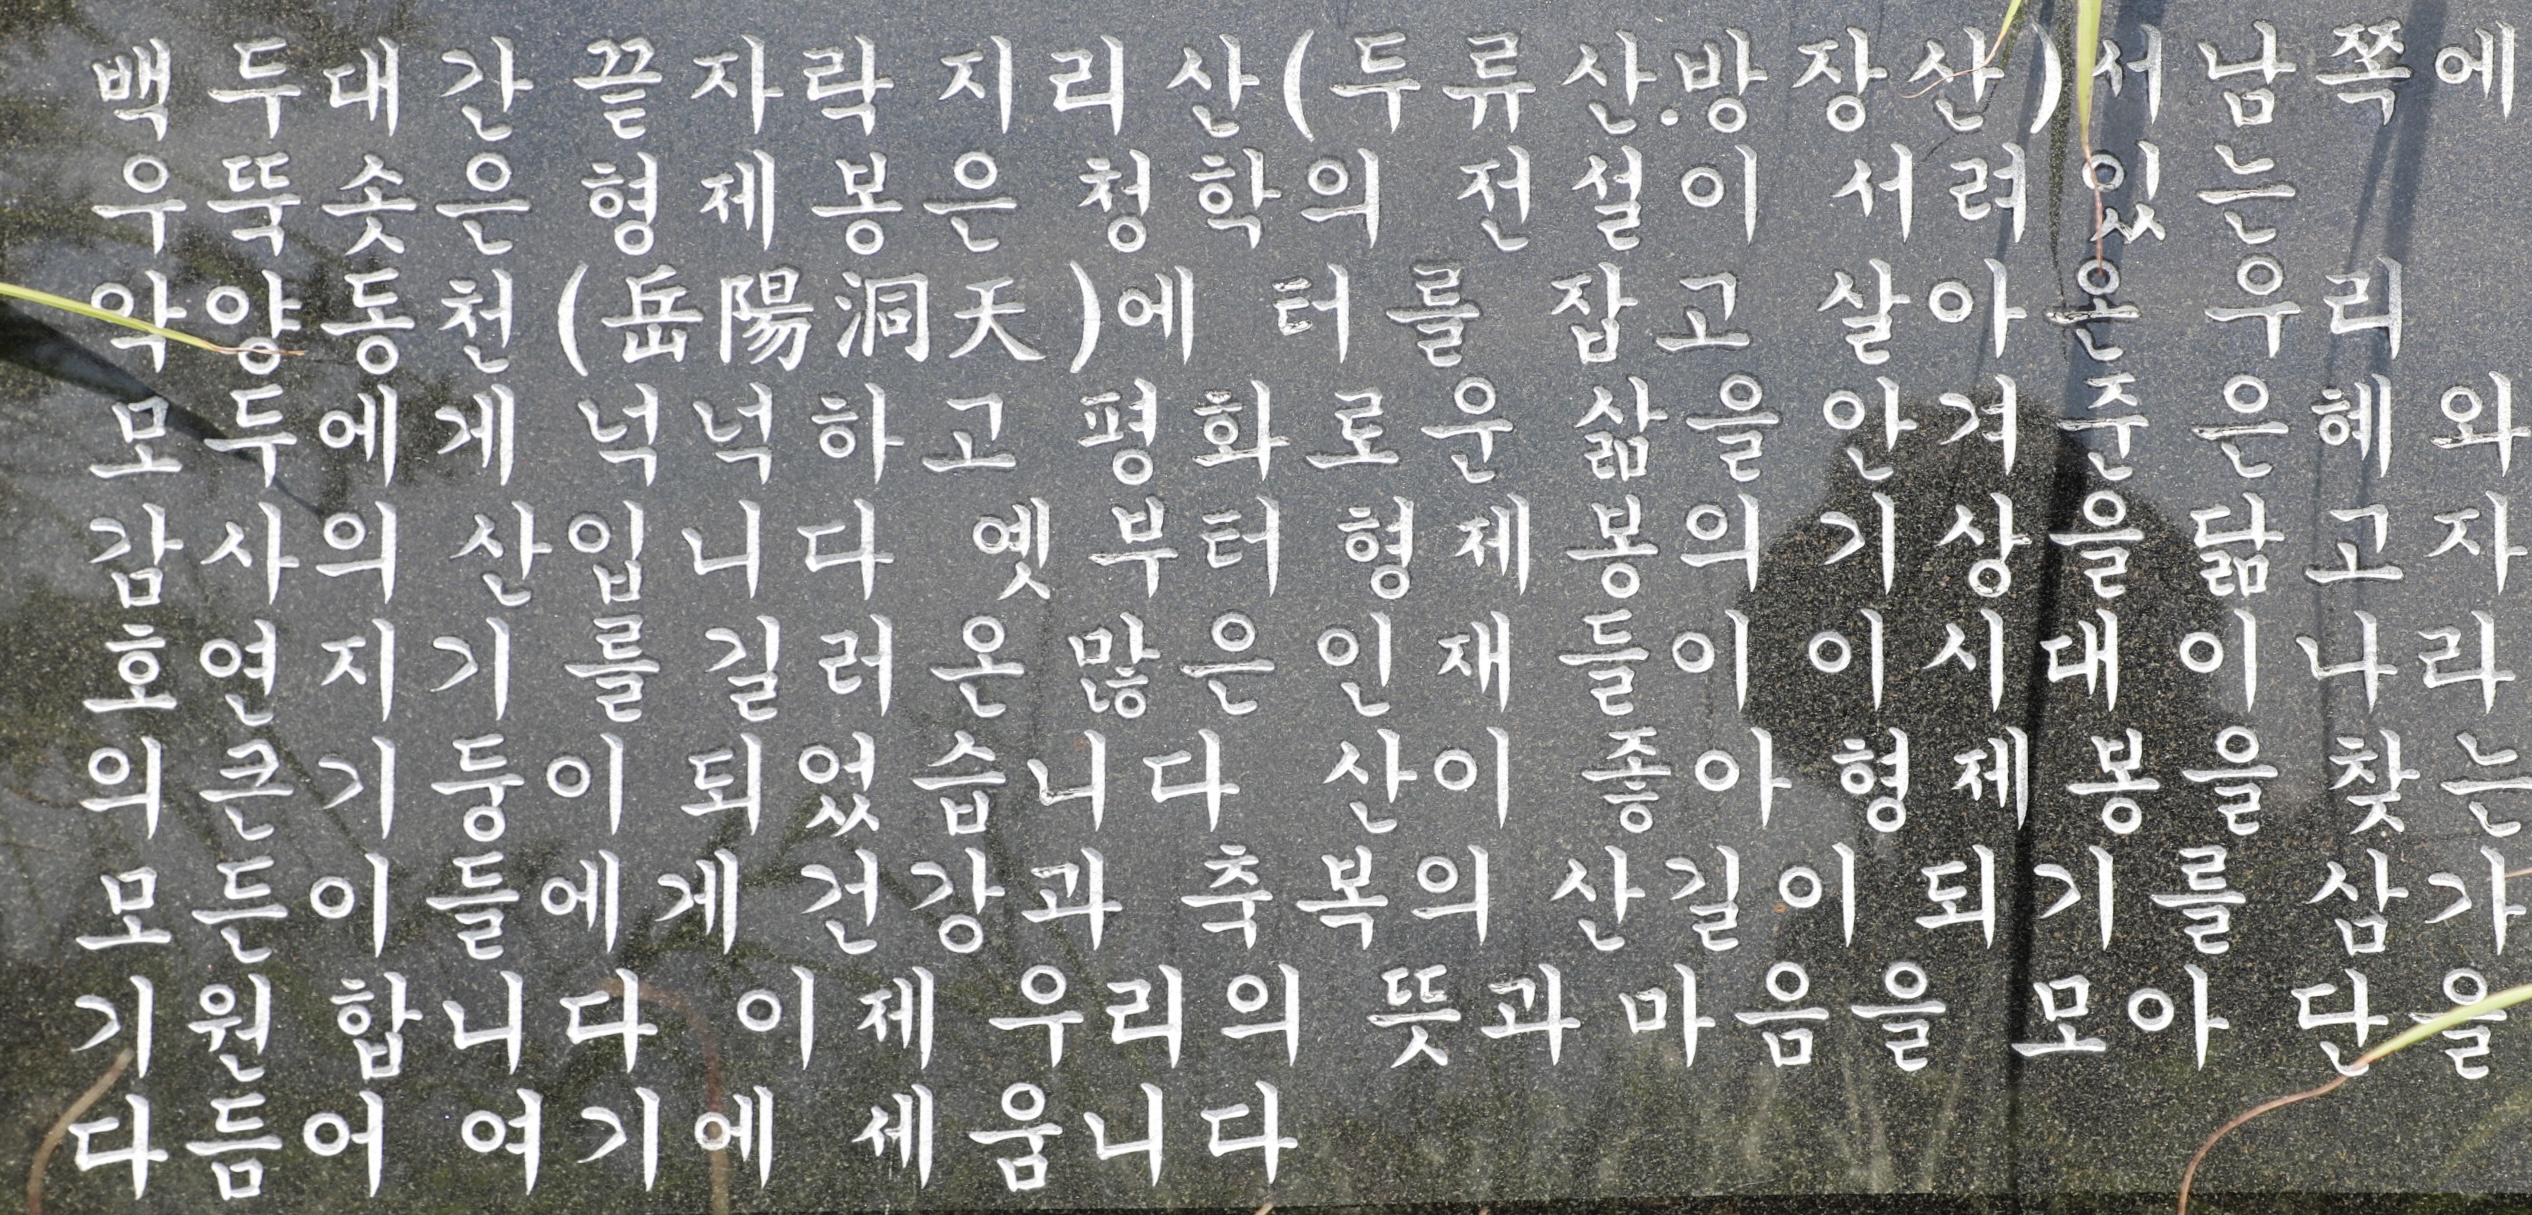 백두대간 끝자락 지리산(두류산.방장산)서남쪽에
우뚝솟은 형제봉은 청학의 전설이 서려 있는
악양동천(岳陽洞天)에 터를 잡고 살아온 우리
모두에게 넉넉하고 평화로운 삶을 안겨준 은혜와
감사의 산입니다 옛부터 형제봉의 기상을 닮고자
호연지기를 길러온 많은 인재들이 이시대 이나라
의 큰기둥이 되었습니다 산이 좋아 형제봉을 찾는
모든이들에게 건강과 축복의 산길이 되기를 삼가
기원 합니다 이제 우리의 뜻과 마음을 모아 단을
다듬어 여기에 세움니다